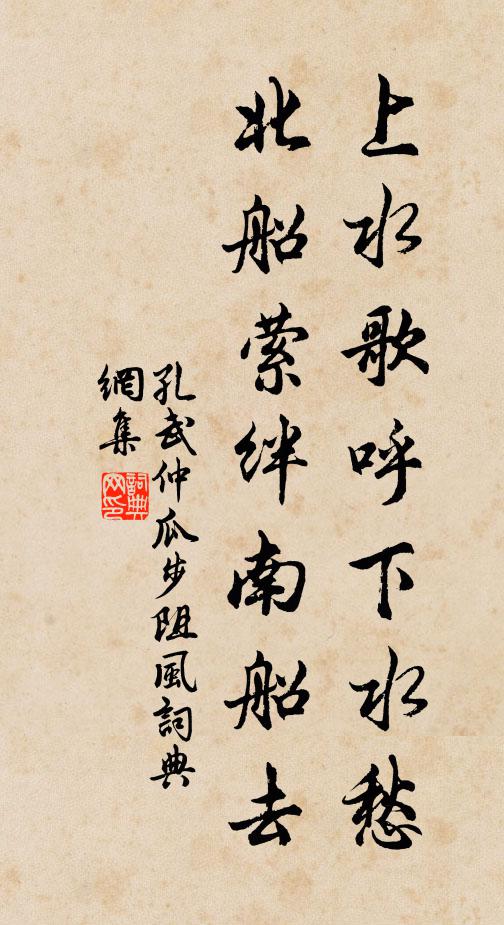 上水歌呼下水愁
北船縈絆南船去
孔武仲瓜步阻風詞典
網集
詞典
网印